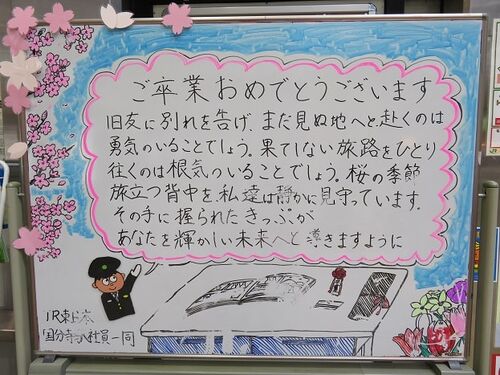 ご卒業おめでとうございます
旧友に別れを告げ、まだ見ぬ地へと赴くのは
勇気のいることでしょう。果てしない旅路をひとり
往くのは根気のいることでしょう。桜の季節
旅立つ背中を、私達は静かに見守っています。
その手に握られたきっぷが
あなたを輝かしい未来へと導きますように
JR東日本
国分寺駅社員一同